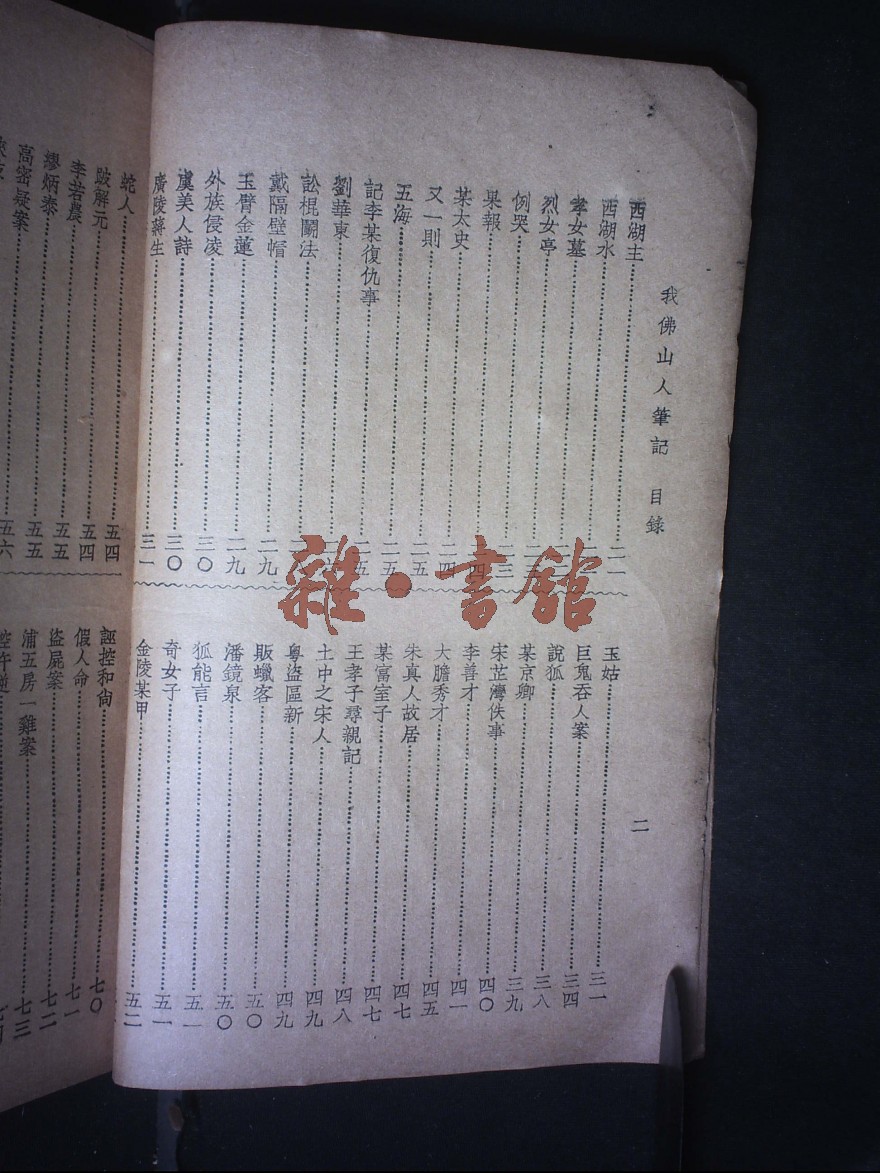 我佛山人筆記 目錄
二
西湖主
西湖水
孝女墓
烈女亭
例哭
果報
某太史
又一則
五海
記李某復仇事
劉華東
訟棍鬭法
戴隔壁帽 二九
玉臂金蓮 二九
外族侵凌 三〇
虞美人詩 三〇
廣陵蔣生 三一
玉姑 三一
巨鬼吞人案 三四
說狐 三八
某京卿 三九
宋芷灣佚事 四〇
李善才 四一
大膽秀才 四五
朱真人故居 四七
某富室子 四七
王孝子尋親記 四八
土中之宋人 四九
粵盜區新 四九
販蠟客 五〇
潘鏡泉 五〇
狐能言 五一
奇女子 五一
金陵某甲 五二
蛇人 五四
跛解元 五四
李若農 五五
繆炳泰 五五
高密疑案 五六
誣控和尙 七〇
假人命 七一
盜屍案 七二
浦五房一雞案 七三
雜·書館